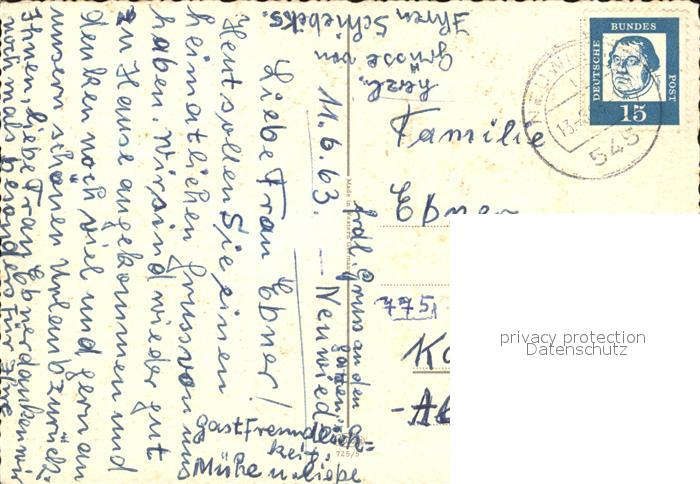 11.6.63. — Neuwied
Liebe Frau Ebner!
Heut sollen Sie einen
heimatlichen Gruss von uns
haben. Wir sind wieder gut
zu Hause angekommen und
denken noch viel und gern an
unsern schönen Urlaub zurück.
Ihnen, liebe Frau Ebner danken wir
noch mal besonders für Ihre
Gastfreundlich-
keit,
Mühe u. Liebe
herzl.
Grüsse von
Ihren Schiebiks.
frdl. Gruss an den
Gatten
Familie
Ebner
775
Made in Western Germany
725/5
DEUTSCHE
BUNDES
POST
15
13.
545
privacy protection
Datenschutz